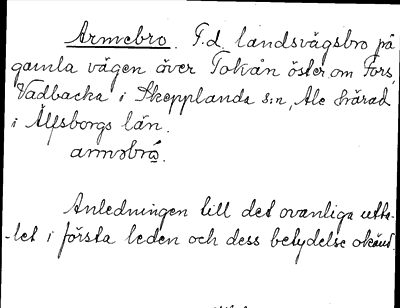 Armebro. F.d. landsvägsbro på
gamla vägen över Tokån öster om Fors,
Vadbacka i Skepplanda s:n, Ale härad
i Älfsborgs län.
arməbrò.
Anledningen till det ovanliga utta-
-let i första leden och dess betydelse okänd.